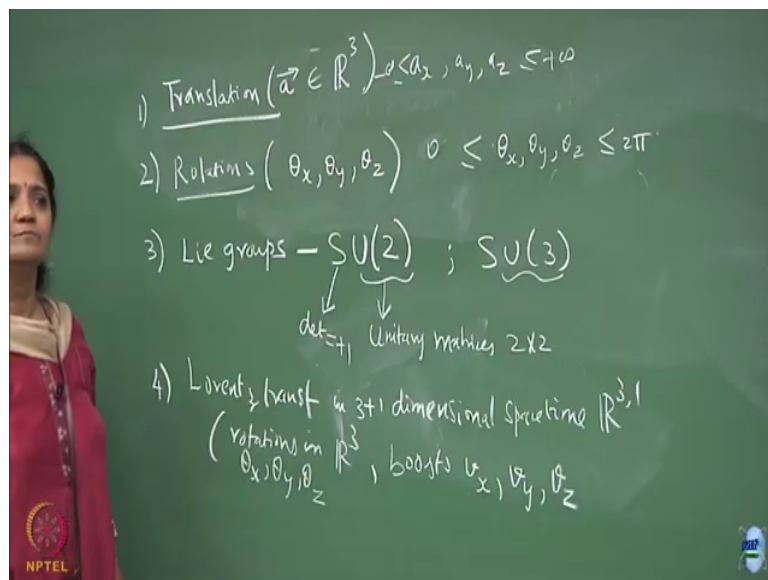 1) Translation (a⃗ ∈ ℝ³) -∞≤a_x, a_y, a_z ≤+∞
2) Rotations (θ_x, θ_y, θ_z) 0 ≤ θ_x, θ_y, θ_z ≤ 2π
3) Lie groups – SU(2) ; SU(3)
det=+1 Unitary matrices 2x2
4) Lorentz transf in 3+1 dimensional spacetime ℝ^3,1
(rotations in ℝ³, boosts v_x, v_y, v_z
θ_x, θ_y, θ_z
NPTEL